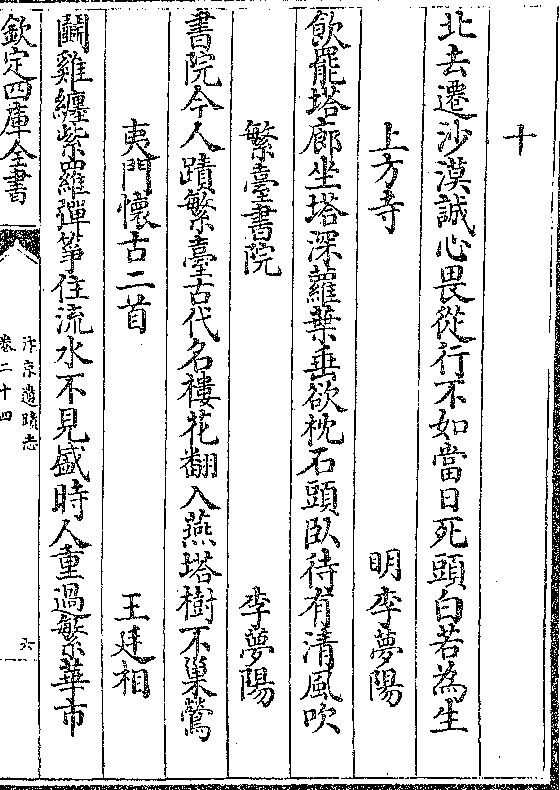 十
北去遷沙漠誠心畏從行不如當日死頭白若為生
上方寺 明李夢陽
飲罷塔廊坐塔深蘿葉垂欲枕石頭臥待有清風吹
繁臺書院 李夢陽
書院今人蹟繁臺古代名褸花翻入燕塔樹不巢鶯
夷門懷古二首 王廷相
鬭雞纏紫羅彈箏住流水不見盛時人重過繁華市
欽定四庫全書
汴京遺蹟志
卷二十四
六